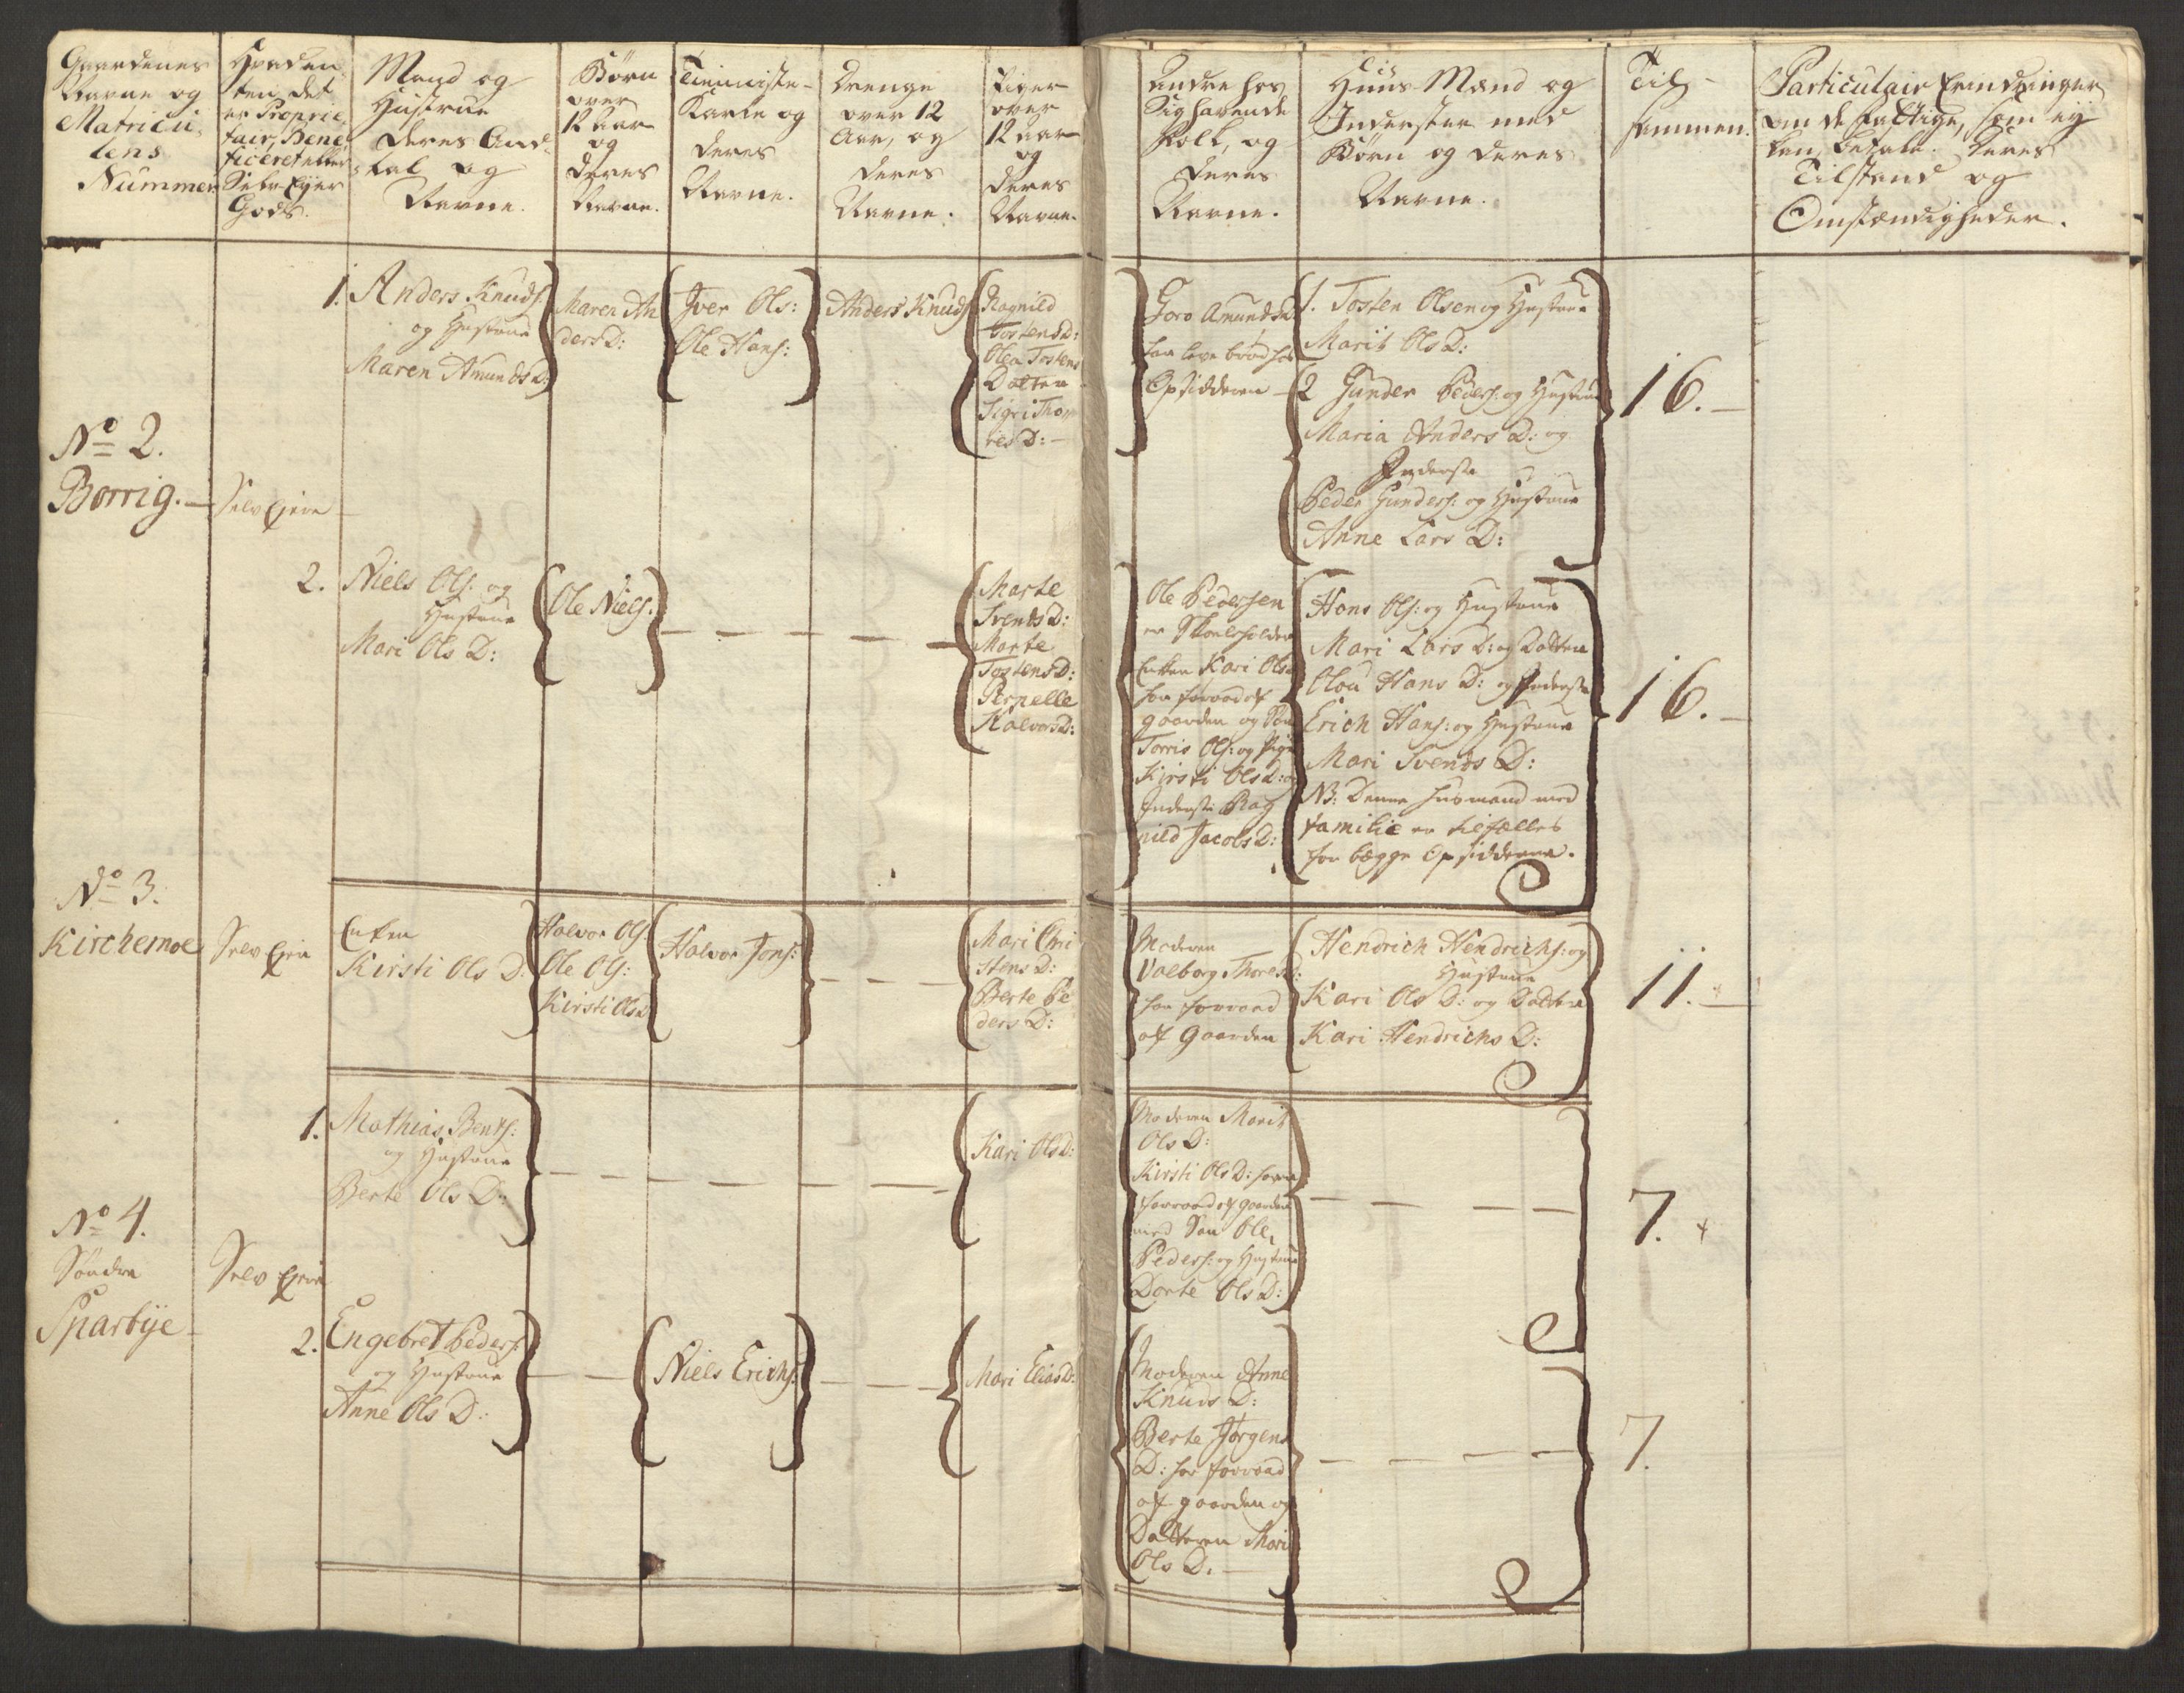 Gaardenes
Navne og
Matricu-
lens
Nummer
Hvorden-
ten det
er Proprie-
tair, Bene-
ficeret eller
Selv Ejer
Gods.
Mand og
Hustrue
deres Andtal og
Navne.
Børn
over
12 Aar
og
deres
Navne.
Tienniste-
Karle og
deres
Navne.
Drenge
over 12
Aar, og
deres
Navne.
Piger
over
12 aar
og
deres
Navne.
Andre hos
Sig havende
Folk, og
deres
Navne.
Huus Mænd og
Inderster med
Børn og deres
Navne.
Til-
sammen.
Particulair Erindringer
om de fattige, som ej
kan betale. deres
Tilstand og
Omstændigheder.
No 2.
Borrig.
Selv Ejere
1. Anders Knuds:
og Hustrue
Maren Amunds D:
Maren An
ders D:
Iver Ols:
Ole Hans:
Anders Knuds:
Ragnild
Tostens D:
Olea Tostens
Datter
Sigri Thor
res D:
Goro Amunds D:
har leve brød hos
Opsidderen
1. Tosten Olsen og Hustrue
Marit Ols D:
2 Gunder Peders: og Hustrue
Maria Anders D: og
Inderste
Peder Gunders: og Hustrue
Anne Lars D:
16.
2. Niels Ols: og
Hustrue
Mari Ols D:
Ole Niels:
Marte
Svends D:
Marte
Tostens D:
Pernelle
Halvors D:
Ole Pedersen
er Skoelholder
Enken Kari Ols D
har foraad af
gaarden og Søn
Torris Ols: og Pige
Kirsti Ols D: og
Inderste Rag
nild Jacobs D:
Hans Ols: og Hustrue
Mari Lars D: og Datter
Olou Hans D: og Inderste
Erich Hans: og Hustrue
Mari Svends D:
NB: Denne huusmand med
familie er tilfælles
for begge Opsidderne.
16.
No 3.
Kirchemoe
Selv Ejer
Enken
Kirsti Ols D:
Halvor Ols:
Ole Ols:
Kirsti Ols D
Halvor Jons:
Mari Chri
stens D:
Berte Pe
ders D:
Moderen
Valborg Thores D:
har forraad
af gaarden
Hendrich Hendrichs: og
Hustrue
Kari Ols D: og Datter
Kari Hendrichs D:
11.
No 4.
Søndre
Sparbye
Selv Ejere
1. Mathias Bents:
og Hustrue
Berte Ols D:
Kari Ols D:
Moderen Marit
Ols D:
Kirsti Ols D: haver
forraad af gaarden
med Søn Ole
Peders: og Hustrue
Dorte Ols D:
7.
2. Engebret Peders:
og Hustrue
Anne Ols D:
Niels Erichs:
Mari Elias D:
Moderen Anne
Knuds D:
Berte Jørgens
D: har forraad
af gaarden og
Datteren Mari
Ols D.
7.